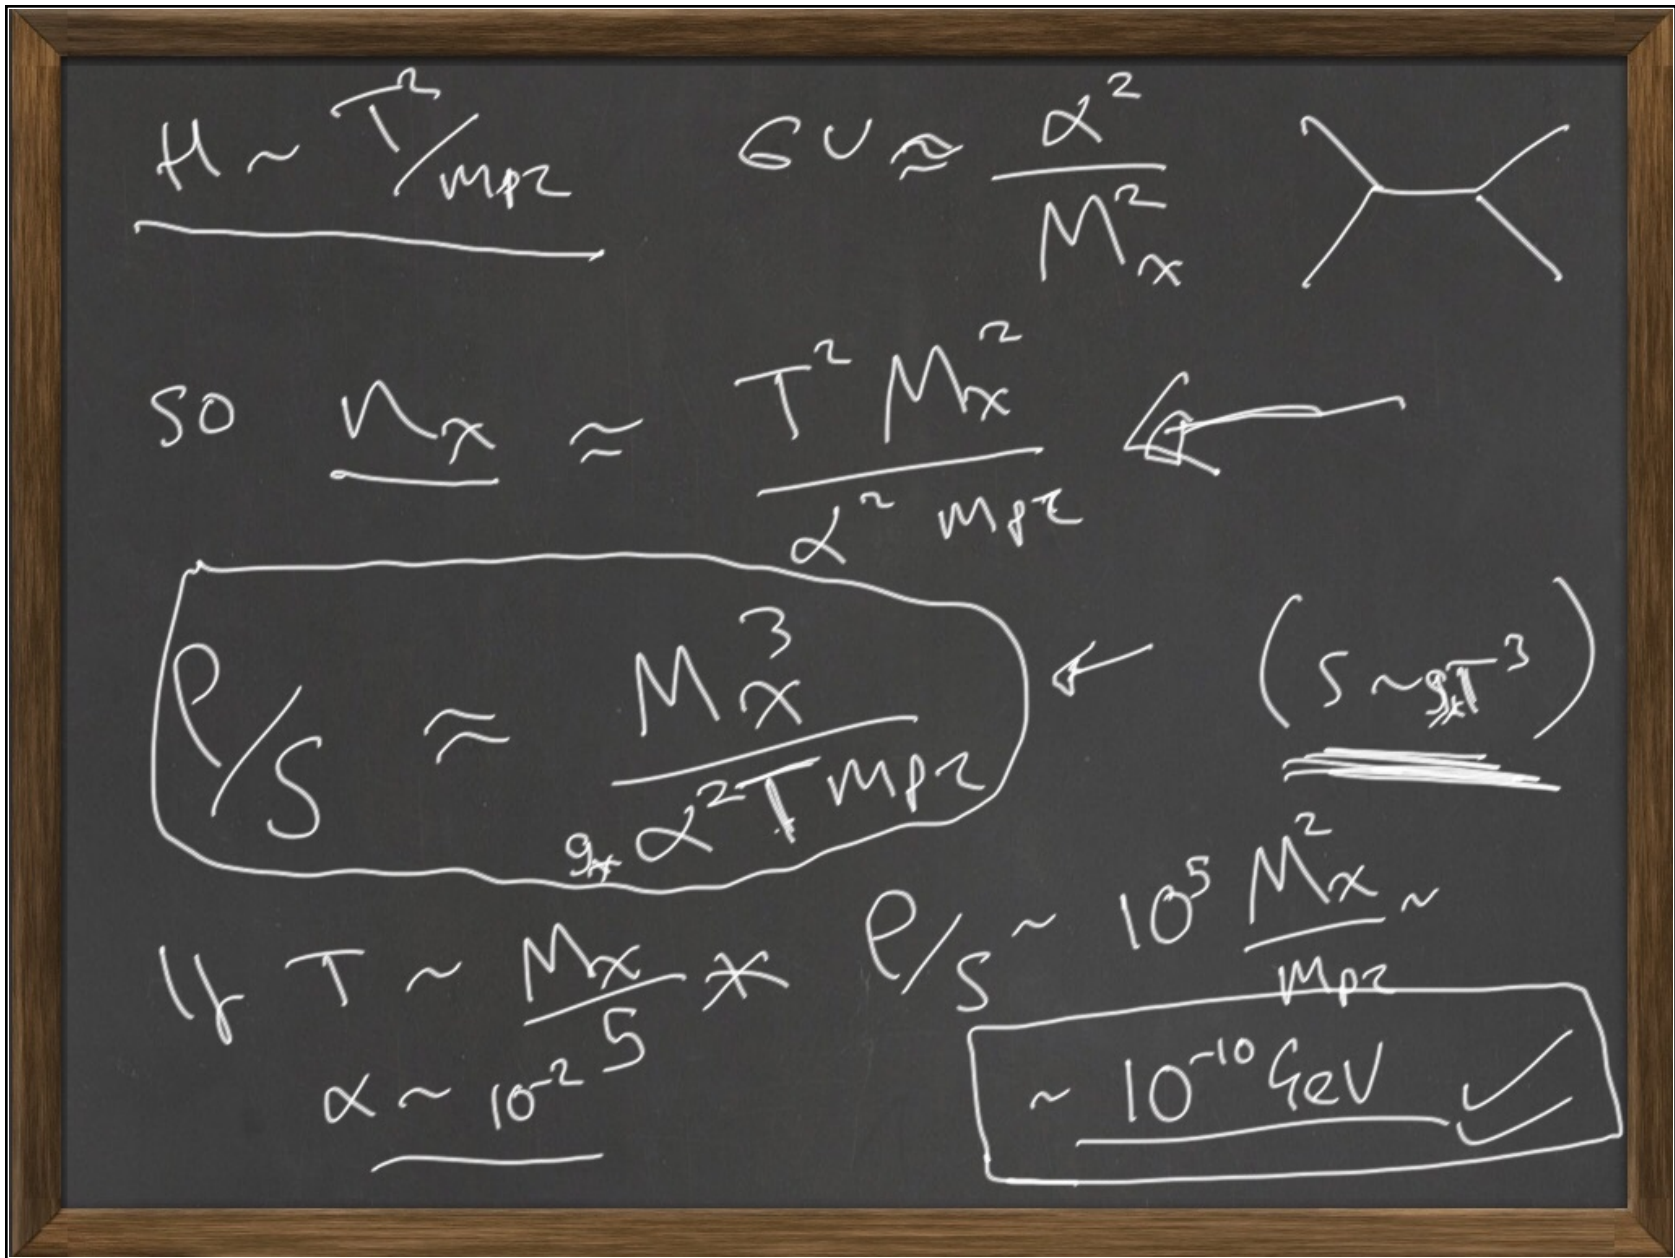 H ~ T²/mpl σv ≈ α²/Mx²
so nx ≈ T² Mx² / α² mpl
ρ/s ≈ Mx³ / g* α² T mpl (s ~ g*T³)
If T ~ Mx/5 * ρ/s ~ 10⁵ Mx²/mpl ~
α ~ 10⁻² ~ 10⁻¹⁰ GeV ✓